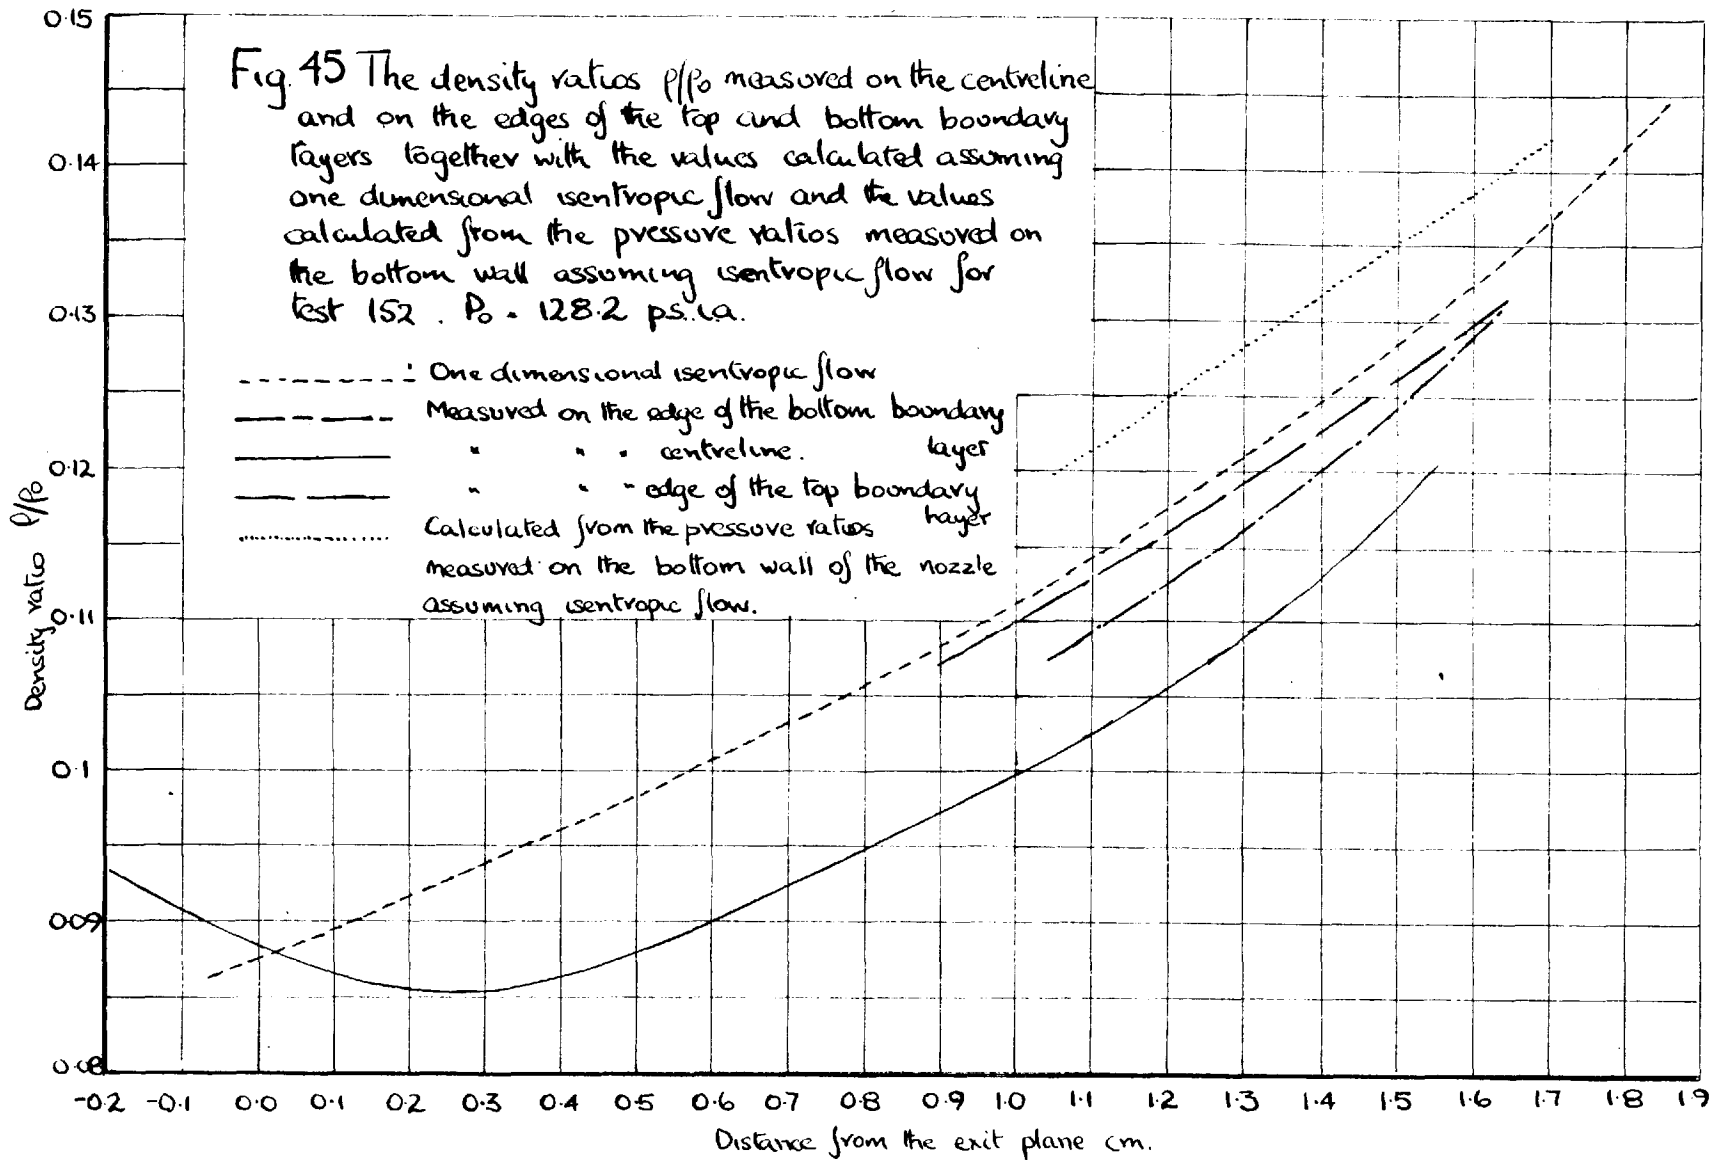 Fig. 45 The density ratios ρ/ρ₀ measured on the centreline
and on the edges of the top and bottom boundary
layers together with the values calculated assuming
one dimensional isentropic flow and the values
calculated from the pressure ratios measured on
the bottom wall assuming isentropic flow for
test 152. P₀ = 128.2 p.s.i.a.
One dimensional isentropic flow
Measured on the edge of the bottom boundary
layer
" " " centreline.
" " " edge of the top boundary
layer
Calculated from the pressure ratios
measured on the bottom wall of the nozzle
assuming isentropic flow.
Density ratio ρ/ρ₀
0.15
0.14
0.13
0.12
0.11
0.1
0.09
0.08
-0.2 -0.1 0.0 0.1 0.2 0.3 0.4 0.5 0.6 0.7 0.8 0.9 1.0 1.1 1.2 1.3 1.4 1.5 1.6 1.7 1.8 1.9
Distance from the exit plane cm.